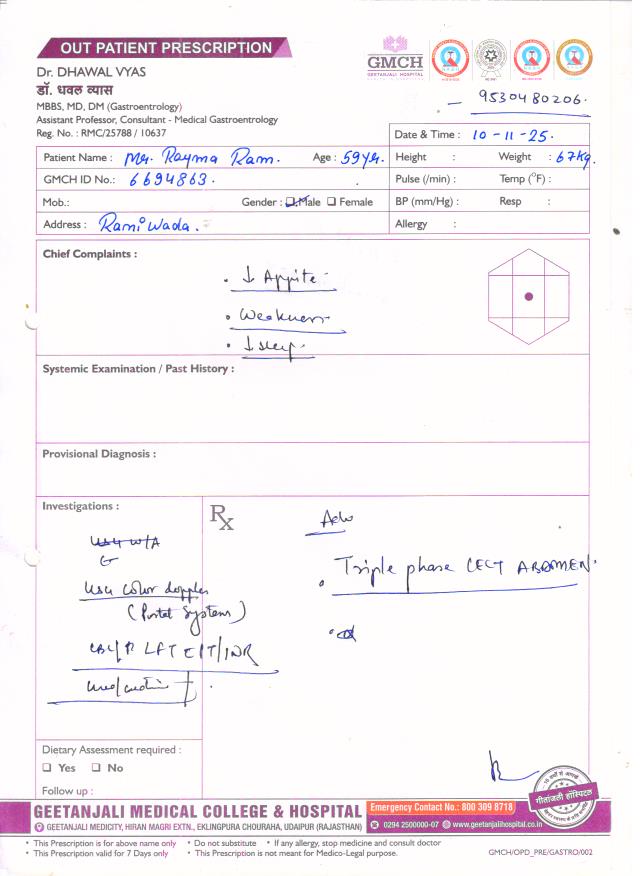 OUT PATIENT PRESCRIPTION
GMCH
GEETANJALI HOSPITAL
Dr. DHAWAL VYAS
डॉ. धवल व्यास
MBBS, MD, DM (Gastroentrology)
Assistant Professor, Consultant - Medical Gastroentrology
Reg. No. : RMC/25788 / 10637
9530480206.
Date & Time : 10-11-25.
Patient Name : Mr. Rayma Ram. Age : 59yr. Height : Weight : 67kg.
GMCH ID No.: 6694863. Pulse (/min) : Temp (°F) :
Mob.: Gender : Male Female BP (mm/Hg) : Resp :
Address : Rami Wada. Allergy :
Chief Complaints :
• ↓ Appite
• Weakness
• ↓ sleep
Systemic Examination / Past History :
Provisional Diagnosis :
Investigations :
Rx
Adv
USG W/A
USG color doppler
(Portal System)
• Triple phase CECT ABDOMEN.
LFT PT/INR
Dietary Assessment required :
Yes No
Follow up :
गीतांजली हॉस्पिटल
GEETANJALI MEDICAL COLLEGE & HOSPITAL
GEETANJALI MEDICITY, HIRAN MAGRI EXTN., EKLINGPURA CHOURAHA, UDAIPUR (RAJASTHAN)
Emergency Contact No.: 800 309 8718
0294 2500000-07 www.geetanjalihospital.co.in
• This Prescription is for above name only • Do not substitute • If any allergy, stop medicine and consult doctor
• This Prescription valid for 7 Days only • This Prescription is not meant for Medico-Legal purpose.
GMCH/OPD_PRE/GASTRO/002